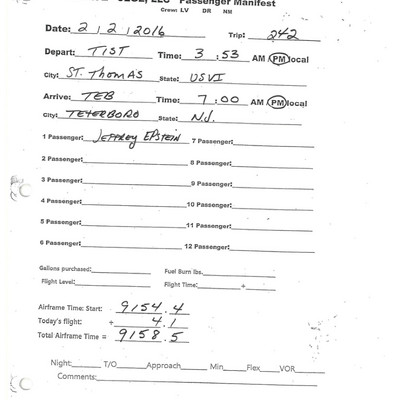 LLC Passenger Manifest
Crew: LV DR NM
Date: 2 | 2 | 2016 Trip: 242
Depart: TIST Time: 3 : 53 AM / PM local
City: ST. THOMAS State: USVI
Arrive: TEB Time: 7 : 00 AM / PM local
City: TETERBORO State: N.J.
1 Passenger: JEFFREY EPSTEIN 7 Passenger:
2 Passenger: 8 Passenger:
3 Passenger: 9 Passenger:
4 Passenger: 10 Passenger:
5 Passenger: 11 Passenger:
6 Passenger: 12 Passenger:
Gallons purchased: Fuel Burn lbs.
Flight Level: Flight Time: +
Airframe Time: Start: 9154.4
Today's flight: + 4.1
Total Airframe Time = 9158.5
Night: T/O Approach Min Flex VOR
Comments: